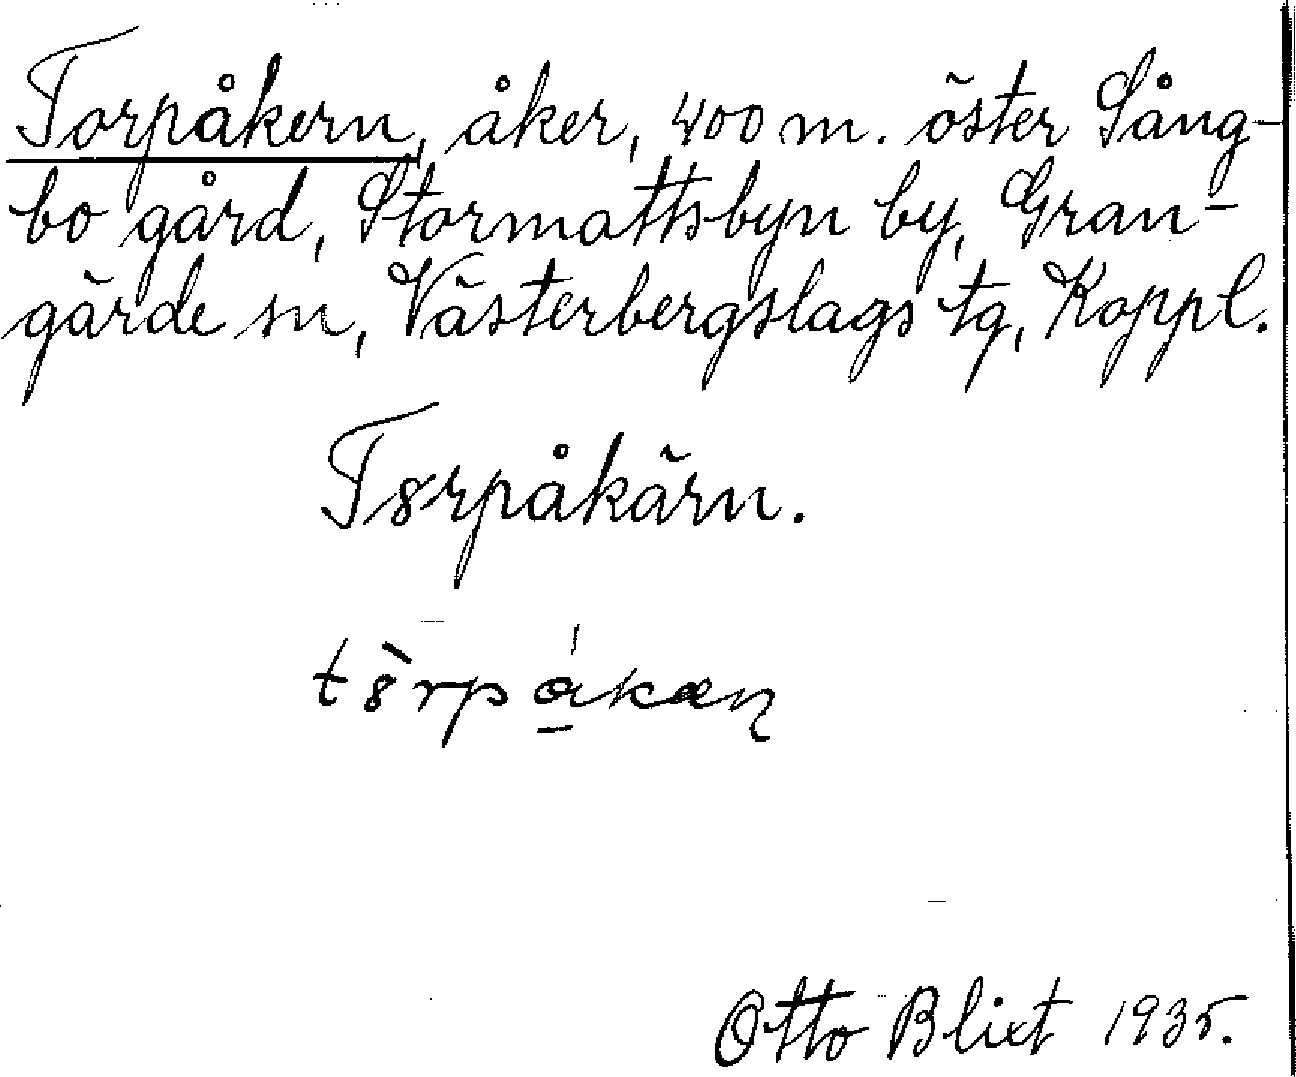 Torpåkern, åker, 400 m. öster Sång-
bo gård, Stormattsbyn by, Gran-
gärde sn, Västerbergslags tg, Koppl.
T8rpåkärn.
t8̀rpǻkæṇ
Otto Blixt 1935.